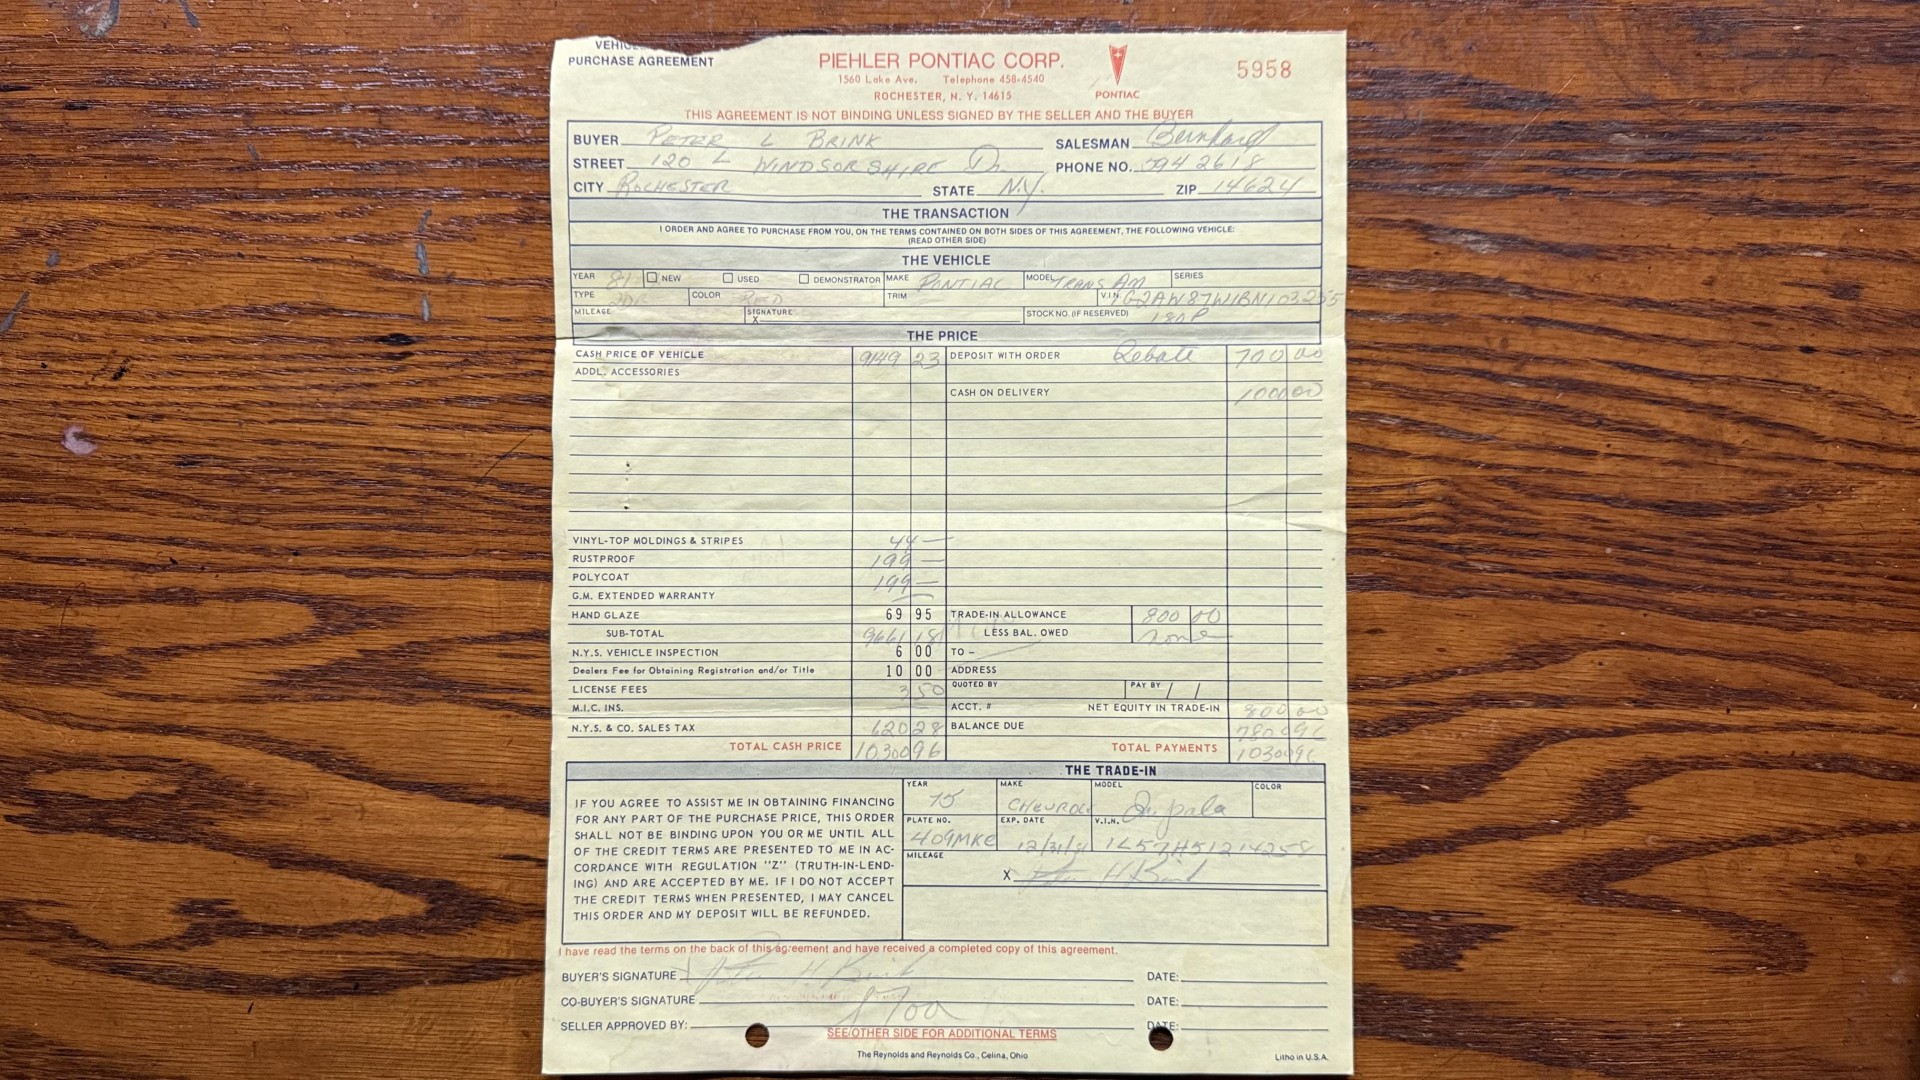 VEHICLE
PURCHASE AGREEMENT
PIEHLER PONTIAC CORP.
1560 Lake Ave. Telephone 458-4540
ROCHESTER, N. Y. 14615
PONTIAC
5958
THIS AGREEMENT IS NOT BINDING UNLESS SIGNED BY THE SELLER AND THE BUYER
BUYER PETER L BRINK SALESMAN Bernhard
STREET 120 L WINDSORSHIRE Dr. PHONE NO. 594 2618
CITY ROCHESTER STATE N.Y. ZIP 14624
THE TRANSACTION
I ORDER AND AGREE TO PURCHASE FROM YOU, ON THE TERMS CONTAINED ON BOTH SIDES OF THIS AGREEMENT, THE FOLLOWING VEHICLE:
(READ OTHER SIDE)
THE VEHICLE
YEAR 81 NEW USED DEMONSTRATOR MAKE PONTIAC MODEL TRANS AM SERIES
TYPE 2DR COLOR RED TRIM V.I.N. 1G2AW87W1BN103255
MILEAGE SIGNATURE X STOCK NO. (IF RESERVED) 180P
THE PRICE
CASH PRICE OF VEHICLE 9149 23 DEPOSIT WITH ORDER Rebate 700 00
ADDL. ACCESSORIES
CASH ON DELIVERY 1000 00
VINYL-TOP MOLDINGS & STRIPES 44 —
RUSTPROOF 199 —
POLYCOAT 199 —
G.M. EXTENDED WARRANTY —
HAND GLAZE 69 95 TRADE-IN ALLOWANCE 800 00
SUB-TOTAL 9661 18 LESS BAL. OWED none
N.Y.S. VEHICLE INSPECTION 6 00 TO –
Dealers Fee for Obtaining Registration and/or Title 10 00 ADDRESS
LICENSE FEES 3 50 QUOTED BY PAY BY / /
M.I.C. INS. ACCT. # NET EQUITY IN TRADE-IN 800 00
N.Y.S. & CO. SALES TAX 620 28 BALANCE DUE 7800 96
TOTAL CASH PRICE 10300 96 TOTAL PAYMENTS 10300 96
THE TRADE-IN
IF YOU AGREE TO ASSIST ME IN OBTAINING FINANCING
FOR ANY PART OF THE PURCHASE PRICE, THIS ORDER
SHALL NOT BE BINDING UPON YOU OR ME UNTIL ALL
OF THE CREDIT TERMS ARE PRESENTED TO ME IN AC-
CORDANCE WITH REGULATION "Z" (TRUTH-IN-LEND-
ING) AND ARE ACCEPTED BY ME. IF I DO NOT ACCEPT
THE CREDIT TERMS WHEN PRESENTED, I MAY CANCEL
THIS ORDER AND MY DEPOSIT WILL BE REFUNDED.
YEAR 75 MAKE CHEVROLE MODEL Impala COLOR
PLATE NO. 409MKC EXP. DATE 12/31/81 V.I.N. 1L57H51214258
MILEAGE
X Peter H Brink
I have read the terms on the back of this agreement and have received a completed copy of this agreement.
BUYER'S SIGNATURE X Peter H Brink DATE:
CO-BUYER'S SIGNATURE DATE:
SELLER APPROVED BY: DATE:
SEE OTHER SIDE FOR ADDITIONAL TERMS
The Reynolds and Reynolds Co., Celina, Ohio
Litho in U.S.A.